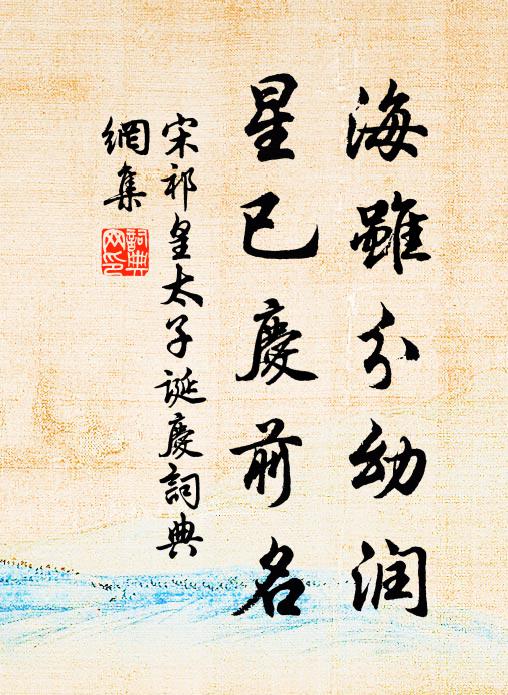 海雖分幼润
星已慶前名
宋祁皇太子誕慶詞典
網集
詞典
网印